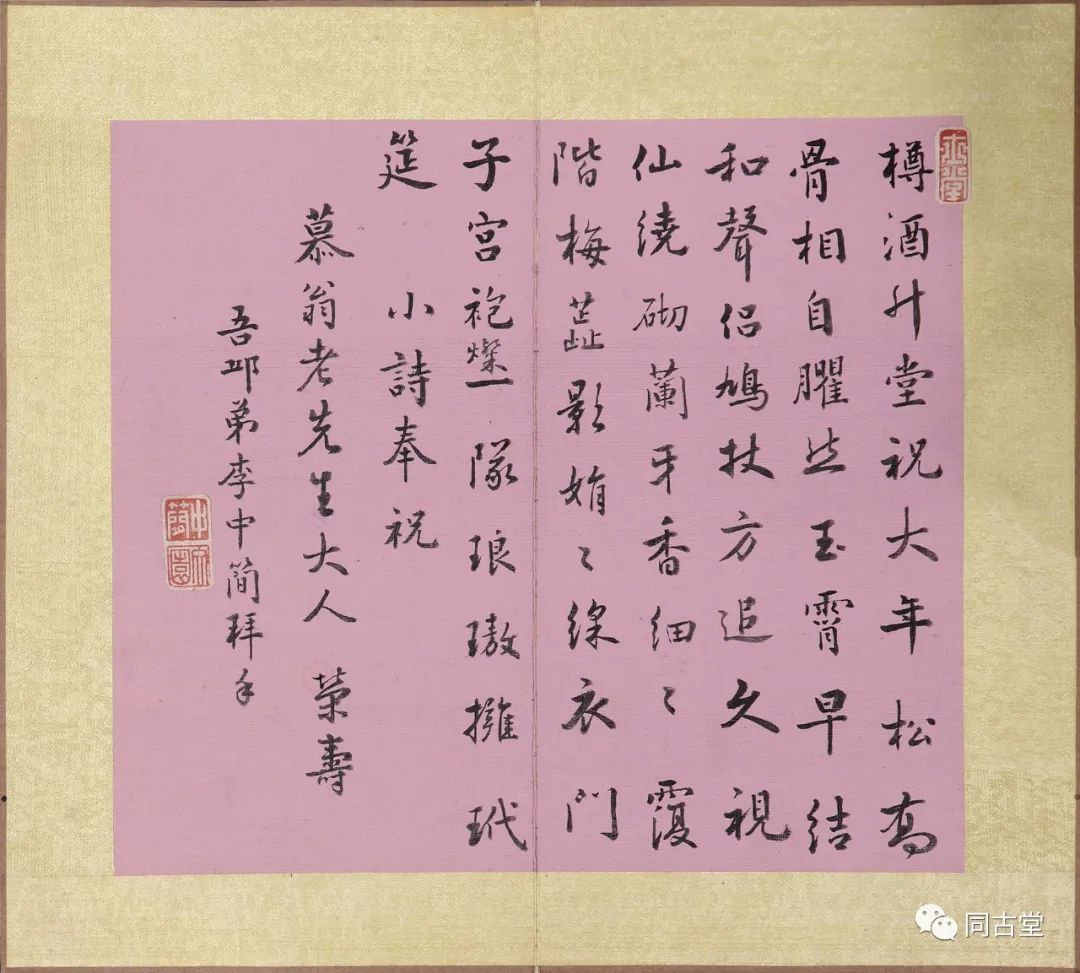 樽酒升堂祝大年松高
骨相自臞然玉霄早結
和聲侶鳩杖方追久視
仙繞砌蘭牙香細〻霞
階梅蕋影娟〻綵衣門
子宮袍燦一隊琅璈擁玳
筵 小詩奉祝
慕翁老先生大人 榮壽
吾邱弟李中簡拜手
同古堂